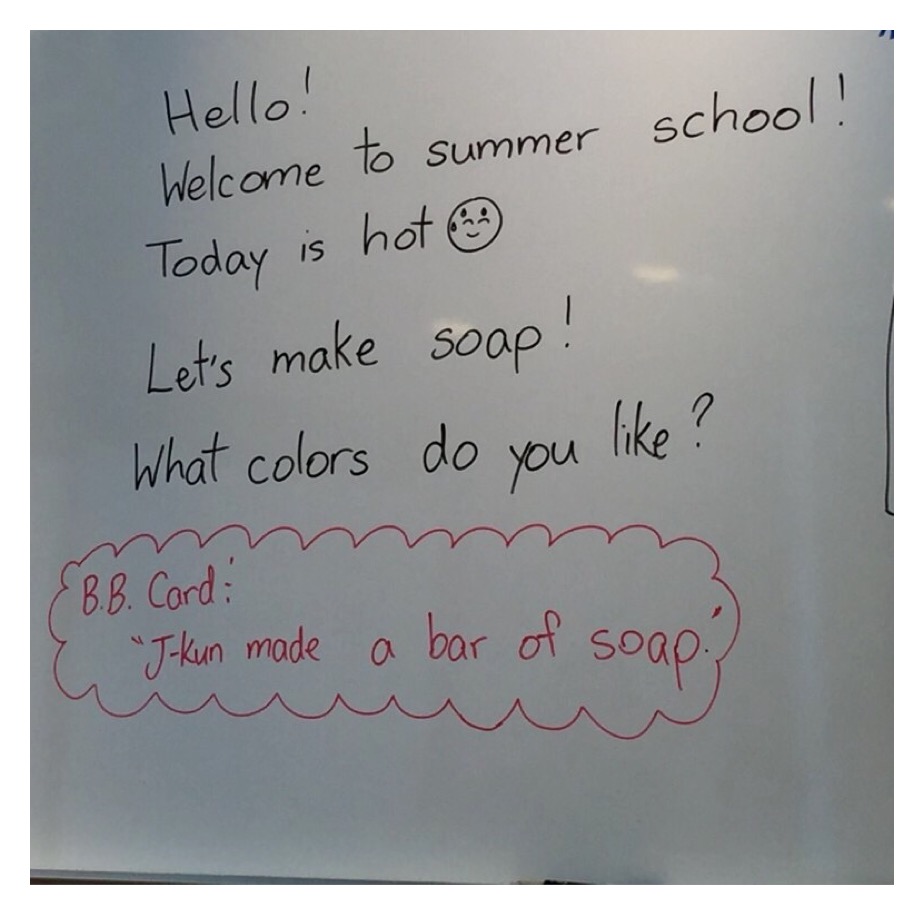 Hello!
Welcome to summer school!
Today is hot
Let's make soap!
What colors do you like?
B.B. Card:
"J-Kun made a bar of soap."